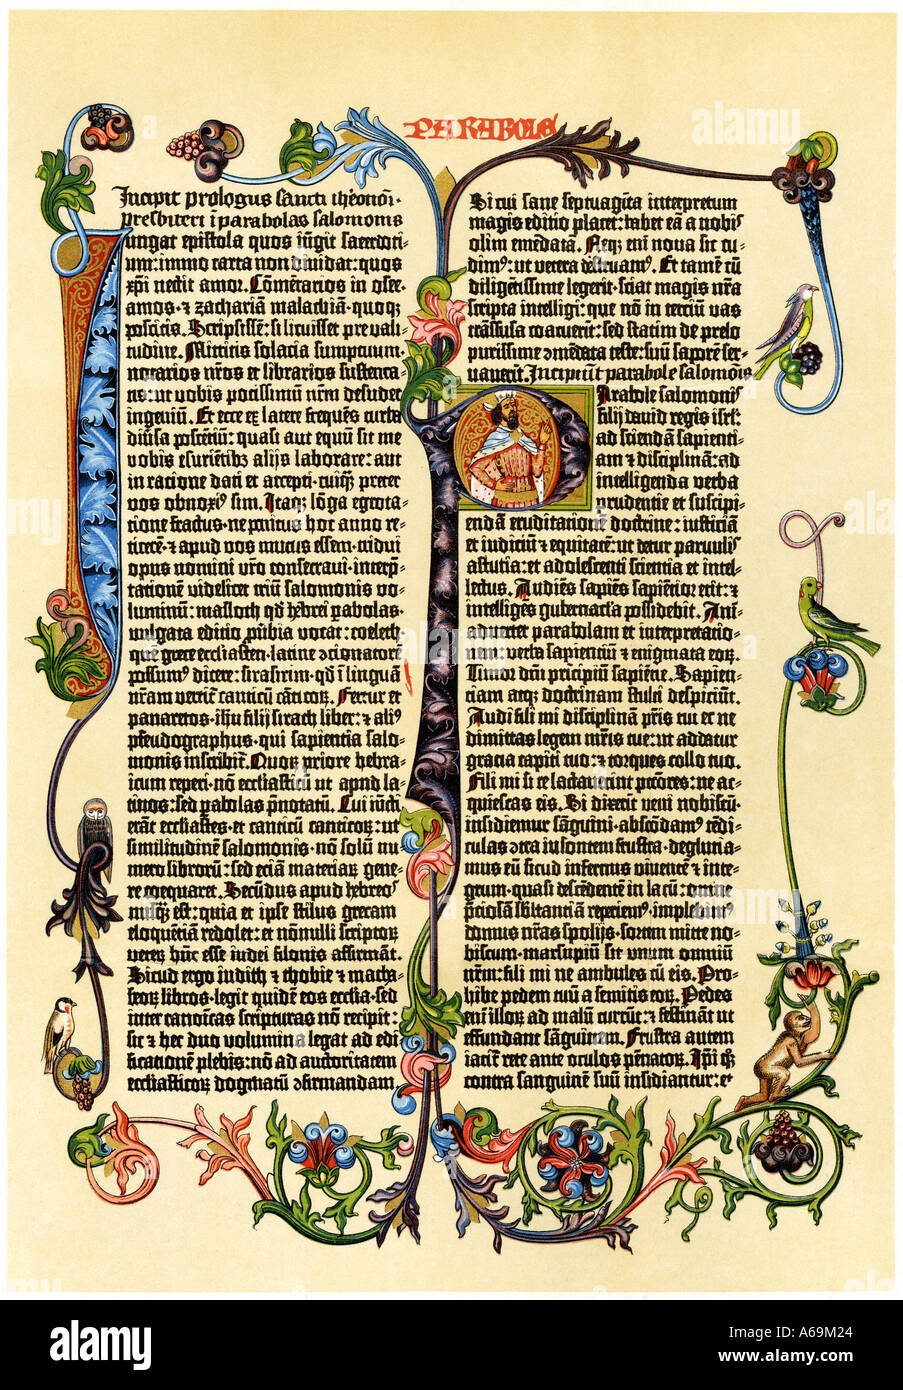 PARABOLE
Incipit prologus sancti iheronimi
presbiteri ī parabolas salomonis
Iungat epistola quos iūgit sacerdoti-
um: immo carta non dividat: quos
xp̄i nectit amor. Cōmētarios in osee.
amos. ⁊ zachariā malachiā. quoꝗ
poscitis. Scripsissē: si licuisset pre vali-
tudine. Mittitis solacia sumptuum.
notarios nr̄os et librarios sustenta-
tis: ut vobis potissimū nr̄m desudet
ingeniū. Et ecce ex latere frequēs turba
diūsa poscētiū: quasi aut equū sit me
vobis esuriētibꝫ alijs laborare: aut
in ratione dati et accepti. cuiꝗ preter
vos obnoxiꝰ sim. Itaꝗ lōga egrota-
tione fractus. ne penitus hoc anno re-
ticerē. ⁊ apud vos mutus essem. tridui
opus nomini vr̄o consecravi. interp̄-
tationē videlicet triū salomonis vo-
luminū: masloth qd̄ hebrei ꝑabolas.
vulgata editio ꝓūbia vocat: coeleth.
quē grece ecclesiasten. latine ↄcionatorē
possumꝰ dicere: sirasirim. qd̄ ī linguā
nr̄am vertit̄ canticū cāticoꝝ. Fertur et
panaretos. ihu filij sirach liber: ⁊ aliꝰ
pseudographus. qui sapientia salo-
monis inscribit̄. Quoꝝ priore hebra-
icum reperi. nō ecclesiasticū ut apud la-
tinos: sed ꝑabolas p̄notatū. Cui iūcti
erāt ecclesiastes. et canticū canticoꝝ: ut
similitudinē salomonis. nō solū nu-
mero librorū: sed etiā materiaꝝ gene-
re coequaret. Secūdus apud hebreos
nusꝗ est: quia et ipse stilus grecam
eloquētiā redolet: et nōnulli scriptoꝝ
veterū hūc esse iudei filonis affirmāt.
Sicud ergo iudith ⁊ thobie ⁊ macha-
beoꝝ libros. legit quidē eos ecclesia. sed
inter canonicas scripturas nō recipit:
sic ⁊ hec duo volumina legat ad edi-
ficationē plebis: nō ad auctoritatem
ecclesiasticoꝝ dogmatū ↄfirmandam.
Si cui sane septuaginta interpretum
magis editio placet: habet eā a nobis
olim emēdatā. Neqꝫ eni nova sic cu-
dimꝰ: ut vetera destruamꝰ. Et tamē cū
diligētissime legerit. sciat magis nr̄a
scripta intelligi: que nō in terciū vas
trāsfusa coacuerīt: sed statim de prelo
purissime ↄmēdata teste: suū saporē ser-
vaverīt. Incipiūt parabole salomōis
Parabole salomonis
filij david regis isrl̄:
ad sciendā sapienti-
am ⁊ disciplinā: ad
intelligenda verba
prudentie et suscipi-
endā eruditationē doctrine: iusticiam
et iudiciū ⁊ equitatē: ut detur parvulis
astutia: et adolescenti scientia et intel-
lectus. Audiēs sapiēs sapiētior erit: ⁊
intelligēs gubernacla possidebit. Ani-
advertet parabolam et interpretatio-
nem: verba sapientiū ⁊ enigmata eoꝝ.
Timor dn̄i principiū sapiētie. Sapien-
tiam atqꝫ doctrinam stulti despiciūt.
Audi fili mi disciplinā pr̄is tui et ne
dimittas legem mr̄is tue: ut addatur
gracia capiti tuo: ⁊ torques collo tuo.
Fili mi si te lactaverint pctōres: ne ac-
quiescas eis. Si dixerīt veni nobiscū.
insidiemur sāguini. abscōdamꝰ tēdi-
culas ↄtra insontem frustra. deglutia-
mus eū sicud infernus viventē ⁊ inte-
grum. quasi descēdentē in lacū: omnē
p̄ciosā sb̄stanciā reperiemꝰ. implebimꝰ
domus nr̄as spolijs. sortem mitte no-
biscum. marsupiū sit unum omniū
nr̄m: fili mi ne ambules cū eis. Pro-
hibe pedem tuū a semitis eoꝝ. Pedes
eni illoꝝ ad malū currūt: ⁊ festināt ut
effundant sāguinem. Frustra autem
iacit̄ rete ante oculos pēnatoꝝ. Ip̄i qꝫ
contra sanguinē suū insidiantur: et
alamy
Image ID: A69M24
www.alamy.com